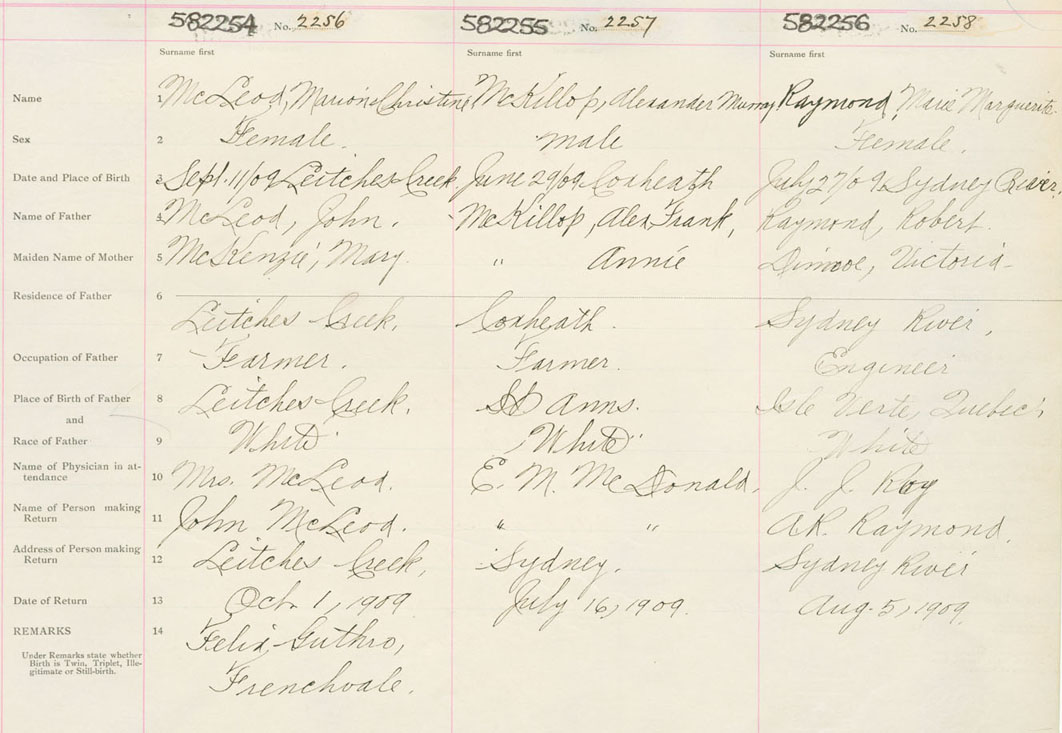 582254 No. 2256 582255 No. 2257 582256 No. 2258
Surname first Surname first Surname first
Name 1 McLeod, Marion Christine McKillop, Alexander Murray Raymond, Marie Marguerite
Sex 2 Female. male Female.
Date and Place of Birth 3 Sept. 11/09 Leitches Creek. June 29/09 Coxheath July 27/09 Sydney River,
Name of Father 4 McLeod, John. McKillop, Alex Frank, Raymond, Robert.
Maiden Name of Mother 5 McKenzie, Mary. " Annie Victoria
Residence of Father 6
Leitches Creek. Coxheath. Sydney River,
Occupation of Father 7 Farmer. Farmer. Engineer
Place of Birth of Father 8 Leitches Creek. St Anns. Isle Verte, Quebec
and
Race of Father 9 White White White
Name of Physician in at-
tendance 10 Mrs. McLeod. E. M. McDonald. J. J. Roy
Name of Person making
Return 11 John McLeod. " " A.R. Raymond.
Address of Person making
Return 12 Leitches Creek, Sydney. Sydney River
Date of Return 13 Oct. 1, 1909 July 16, 1909. Aug. 5, 1909.
REMARKS 14 Felix Guthro,
Under Remarks state whether
Birth is Twin, Triplet, Ille-
gitimate or Still-birth.
Frenchvale.